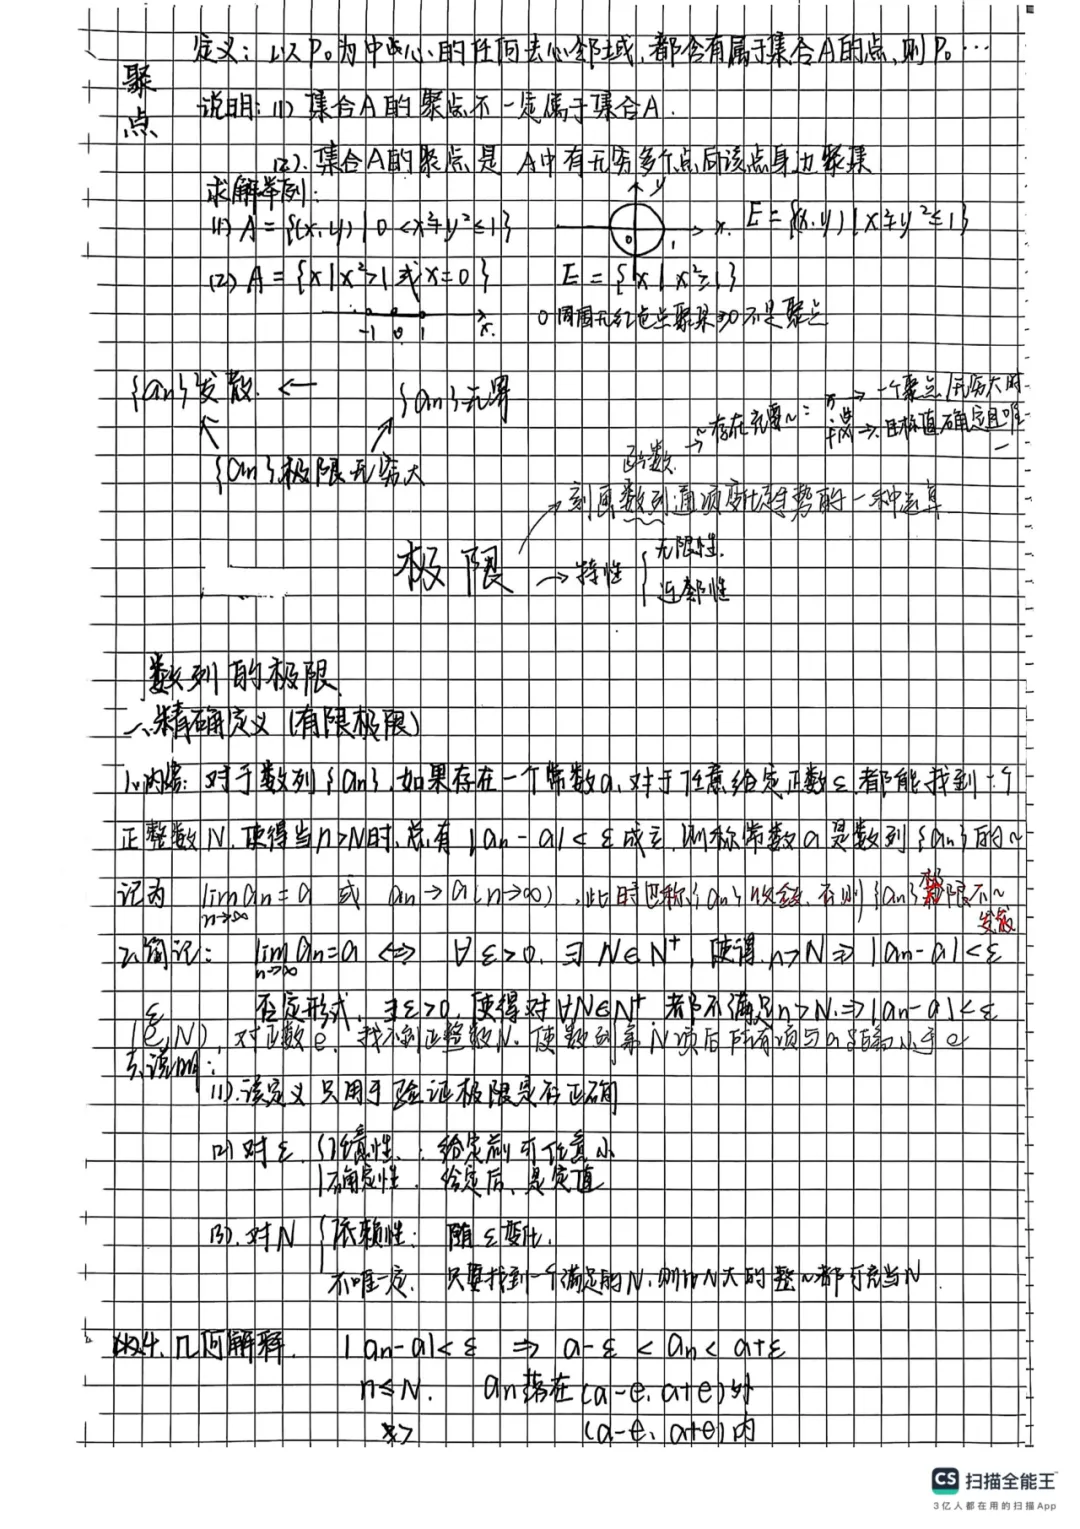 聚点
定义：以P₀为中心的任何去心邻域，都含有属于集合A的点，则P₀…
说明：(1) 集合A的聚点不一定属于集合A.
(2). 集合A的聚点是 A中有无穷多个点向该点身边聚集
求解举例：
(1) A={(x,y)|0<x²+y²≤1} y 0 1 x. E={(x,y)|x²+y²≤1}
(2) A={x|x²>1或x=0} E={x|x²≥1}
-1 0 1 x. 0周围无红色点聚集⇒0不是聚点
{an}发散. ← {an}无界
{an}极限无穷大
函数 ~存在充要~: 一个聚点 无穷大时
f(x)→. 目标值确定且唯一
刻画数列通项变化趋势的一种运算
极限 →特性 { 无限性.
近邻性
数列的极限
一、精确定义（有限极限）
1.内容：对于数列{an}，如果存在一个常数a，对于任意给定正数ε都能找到一个
正整数N，使得当n>N时，总有|an-a|<ε成立，则称常数a是数列{an}的~
记为 lim an=a 或 an→a(n→∞)，此时也称{an}收敛，否则{an}极限不~
n→∞ 发散
2.简记： lim an=a ⇔ ∀ε>0，∃N∈N⁺，使得 n>N⇒|an-a|<ε
n→∞
否定形式，∃ε>0，使得对∀N∈N⁺ 都不满足n>N.⇒|an-a|<ε
ε
(e,N)，对正数e，找不到正整数N，使数列第N项后所有项与a距离小于e
3.说明：
(1).该定义只用于验证极限是否正确
(2) 对ε {任意性：给定前可任意小
确定性. 给定后，是定值
(3). 对N {依赖性：随ε变化.
不唯一定. 只要找到一个满足的N，则比N大的整~都可充当N
4.几何解释. |an-a|<ε ⇒ a-ε<an<a+ε
n≤N. an落在(a-e, a+e)外
> (a-e, a+e)内
CS 扫描全能王
3亿人都在用的扫描App